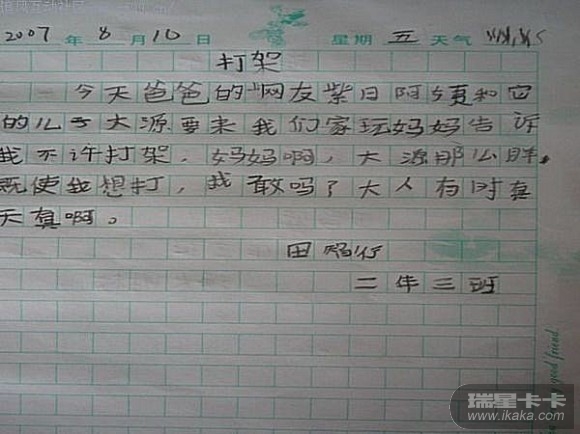 2007年8月10日 星期五天气
打架
今天爸爸的"网友紫日阿姨和它
的儿子大源要来我们家玩妈妈告诉
我不许打架，妈妈啊，大源那么胖，
既使我想打，我敢吗？大人有时真
天真啊。
田
二年三班
good friend
瑞星卡卡
www.ikaka.com